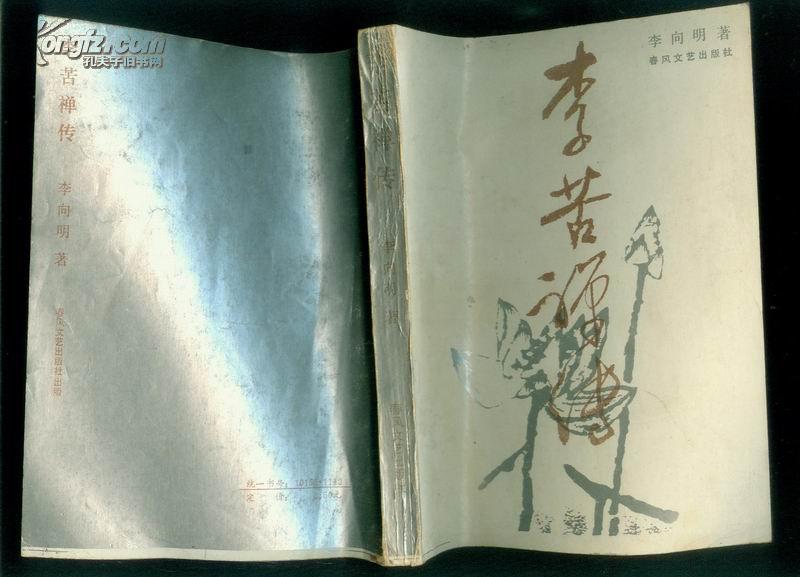 Kongfz.com
孔夫子旧书网
苦禅传
李向明 著
春风文艺出版社出版
统一书号：10158·1143
定 价：
传
李向明 著
春风文艺
李向明 著
春风文艺出版社
李苦禅传